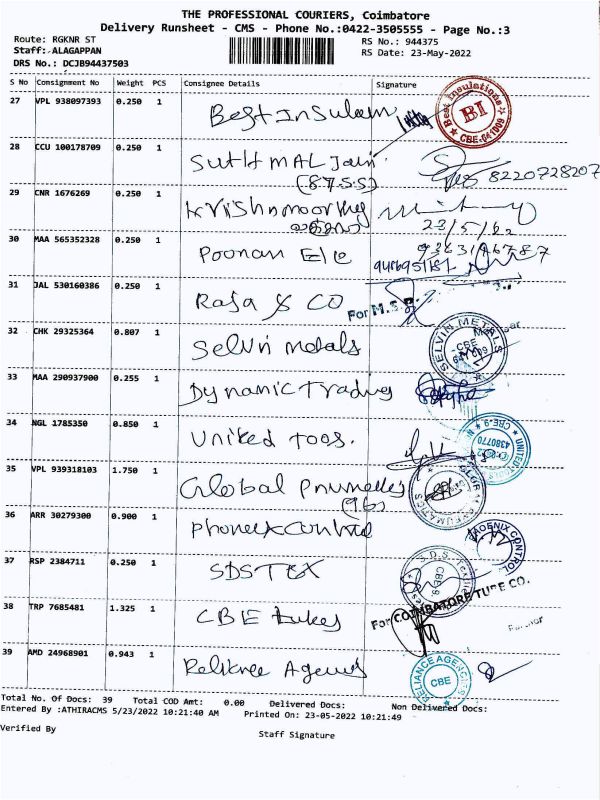 THE PROFESSIONAL COURIERS, Coimbatore
Delivery Runsheet - CMS - Phone No.:0422-3505555 - Page No.:3
Route: RGKNR ST
RS No.: 944375
Staff: ALAGAPPAN
RS Date: 23-May-2022
DRS No.: DCJB94437503
S No Consignment No Weight PCS Consignee Details Signature
27 VPL 938097393 0.250 1 Best Insulation
Best Insulations BI CBE-641009
28 CCU 100178709 0.250 1 Sutit MAL Jain
(8755) 8220728207
29 CNR 1676269 0.250 1 Krishnmoorthy
23/5/22
30 MAA 565352328 0.250 1 Poonan Ele
31 JAL 530160386 0.250 1 Raja & CO For M.S.
32 CHK 29325364 0.807 1 Selvin metals
SELVIN METALS CBE 641009
33 MAA 290937900 0.255 1 Dynamic Trading
34 NGL 1785350 0.850 1 United Toos.
UNITED TOOLS 4380770 CBE-9
35 VPL 939318103 1.750 1 Global pnumatics
(96)
36 ARR 30279300 0.900 1 phonex control
PHOENIX CONTROL
37 RSP 2384711 0.250 1 SDSTEX
S.D.S. CBE-9.
38 TRP 7685481 1.325 1 CBE tubes
For COIMBATORE TUBE CO.
Partner
39 AMD 24968901 0.943 1 Reliknce Agencies
RELIANCE AGENCIES CBE
Total No. Of Docs: 39 Total COD Amt: 0.00 Delivered Docs: Non Delivered Docs:
Entered By :ATHIRACMS 5/23/2022 10:21:40 AM Printed On: 23-05-2022 10:21:49
Verified By
Staff Signature